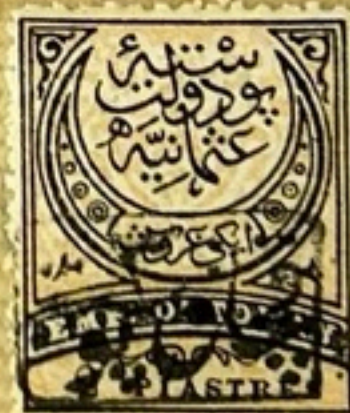 پوستهٔ
دولت
عثمانیه
ایکی غروش
EMP. OTTOMAN
PIASTRES